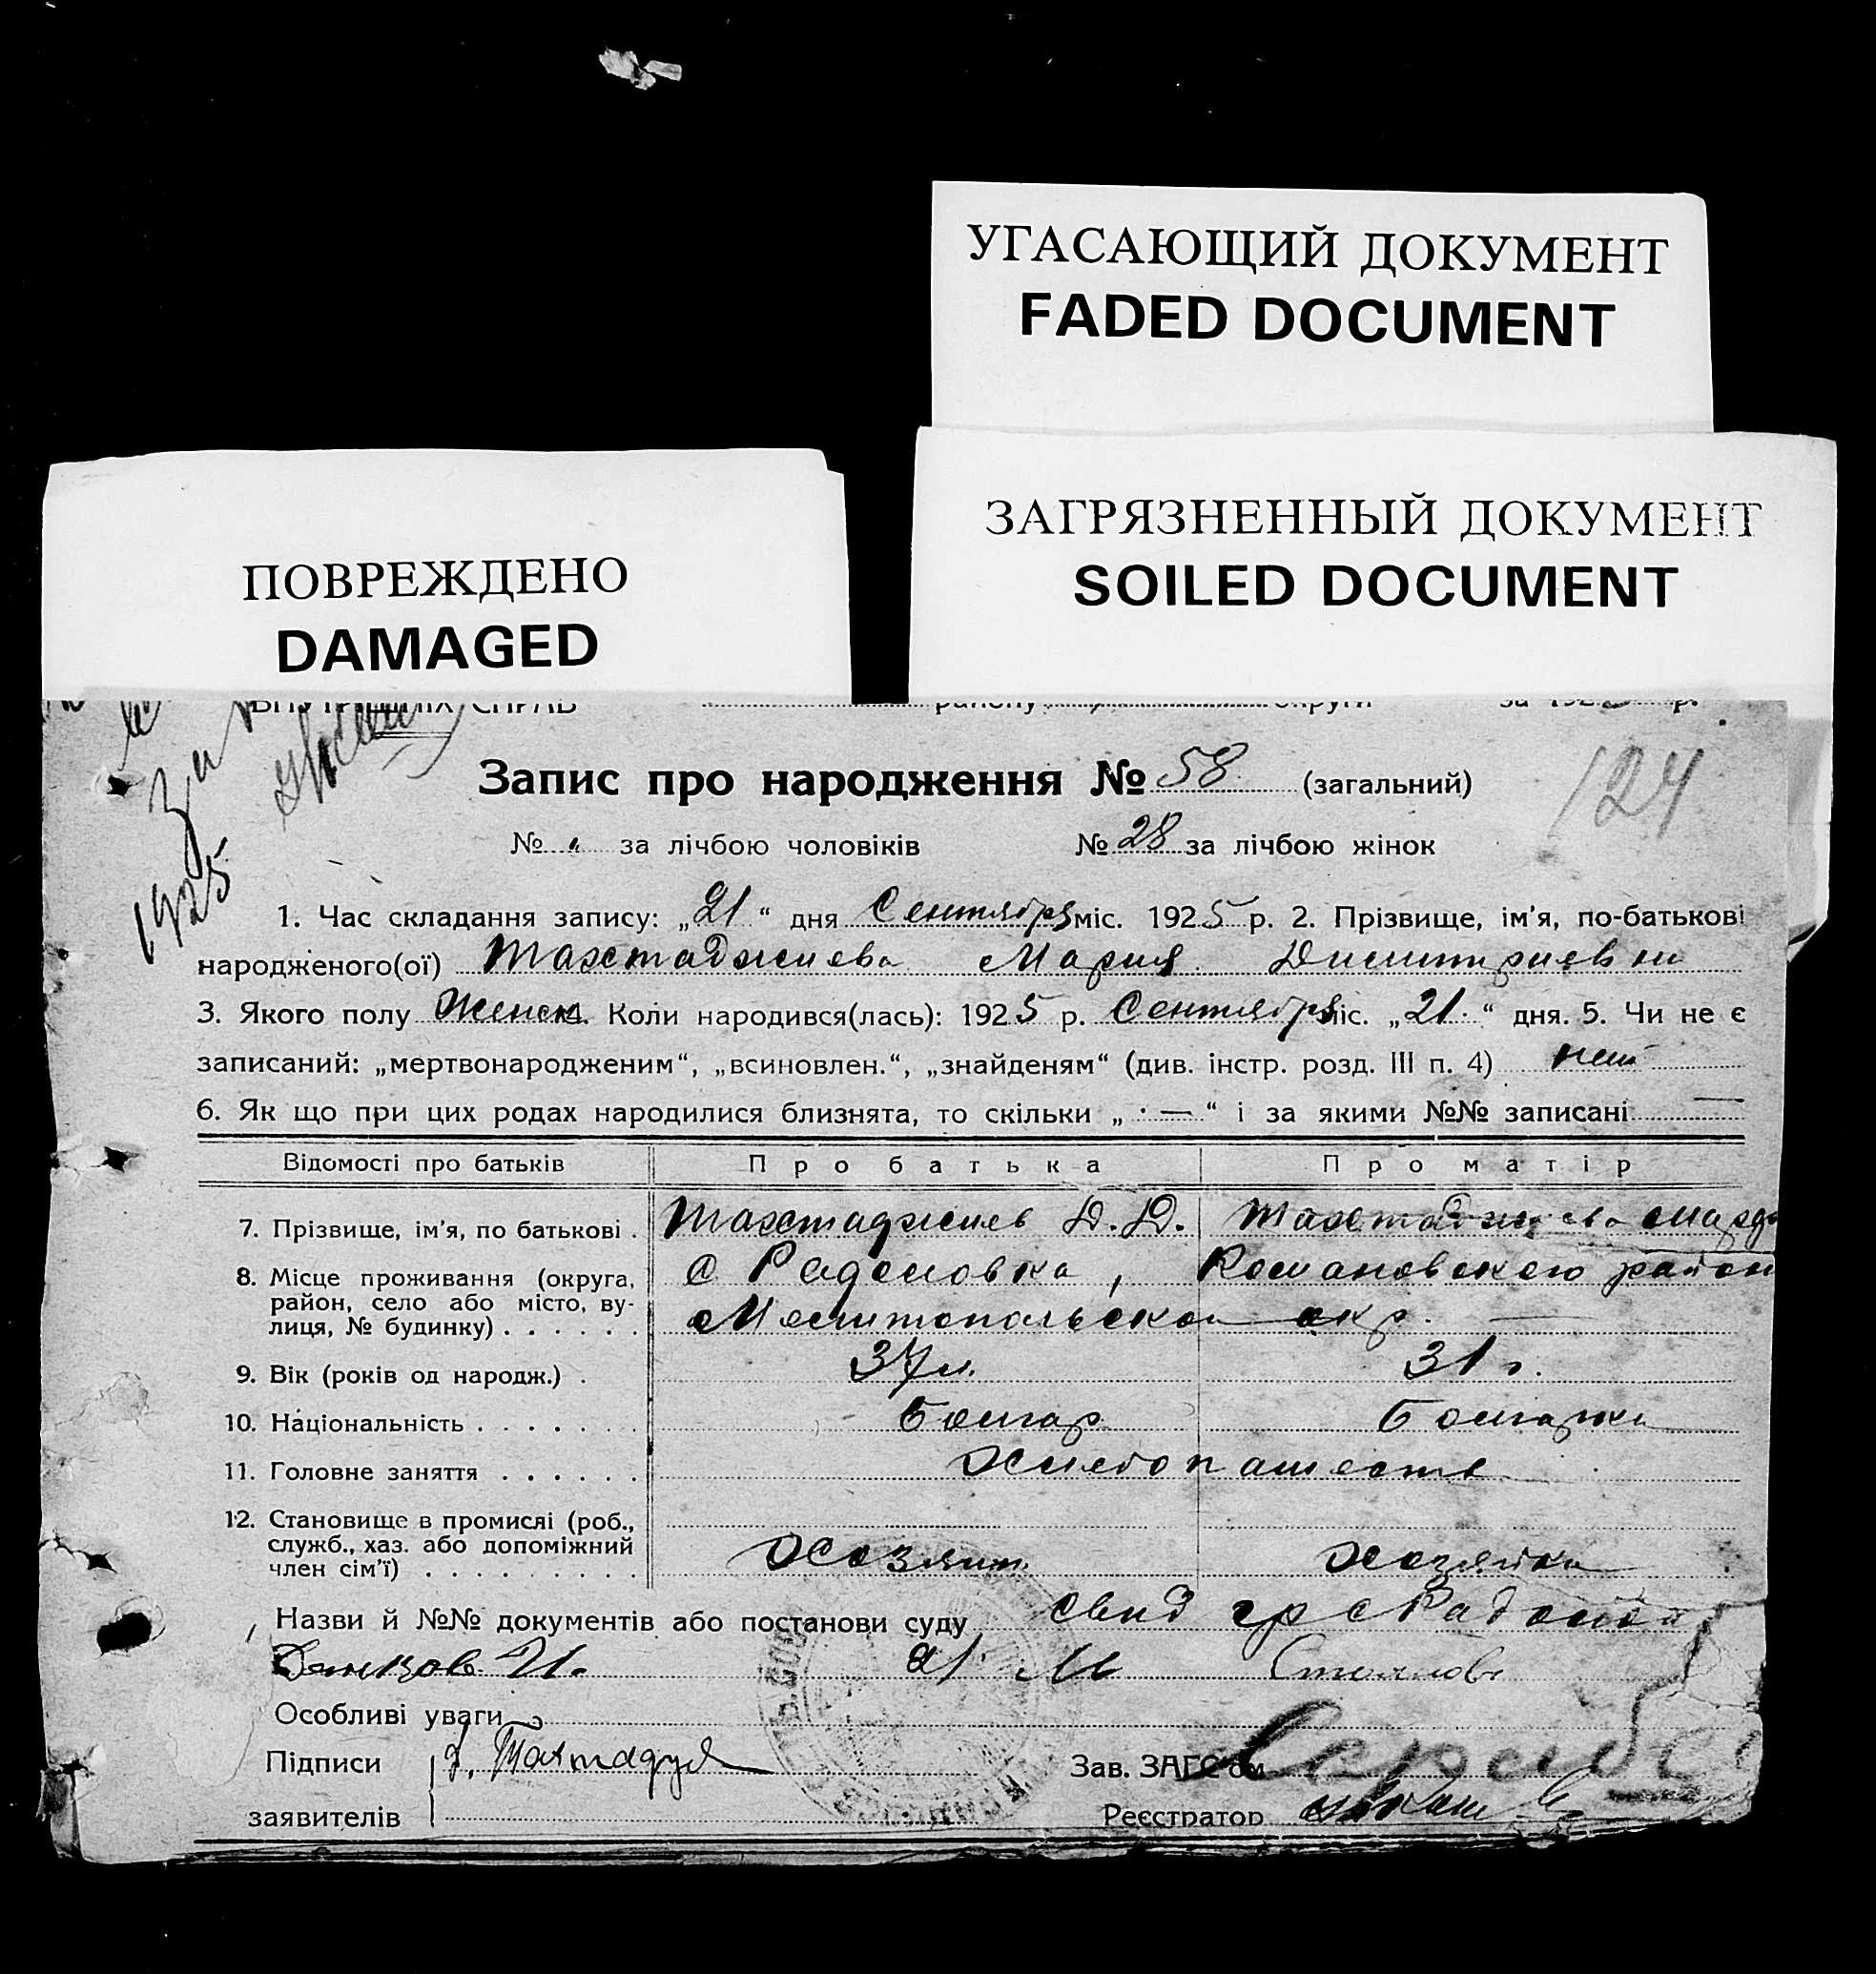 УГАСАЮЩИЙ ДОКУМЕНТ
FADED DOCUMENT
ЗАГРЯЗНЕННЫЙ ДОКУМЕНТ
SOILED DOCUMENT
ПОВРЕЖДЕНО
DAMAGED
1925
Запис про народження № 58 (загальний)
124
№ " за лічбою чоловіків № 28 за лічбою жінок
1. Час складання запису: „21“ дня Сентября міс. 1925 р. 2. Прізвище, ім’я, по-батькові
народженого(ої) Тахтаджиева Мария Димитриевна
3. Якого полу Женск. 4. Коли народився(лась): 1925 р. Сентября міс. „21.“ дня. 5. Чи не є
записаний: „мертвонародженим“, „всиновлен.“, „знайденям“ (див. інстр. розд. III п. 4) нет
6. Як що при цих родах народилися близнята, то скільки „—“ і за якими №№ записані —
Відомості про батьків Про батька Про матір
7. Прізвище, ім’я, по батькові . Тахтаджиев Д. Д. Тахтаджиева
8. Місце проживання (округа, район, село або місто, вулиця, № будинку) . . . . . . с Радоловка, Романовского район
Мелитопольской окр. —
9. Вік (років од народж.) . 37 л. 31 г.
10. Національність . . . . . . . Болгар Болгарка
11. Головне заняття . . . . . . Хлебопашеств
12. Становище в промислі (роб.,
служб., хаз. або допоміжний
член сім’ї) . . . . . . . . . Хозяин Хозяйка
Назви й №№ документів або постанови суду свид гр с
Особливі уваги
Підписи Зав. ЗАГС’ом
заявителів Реєстратор